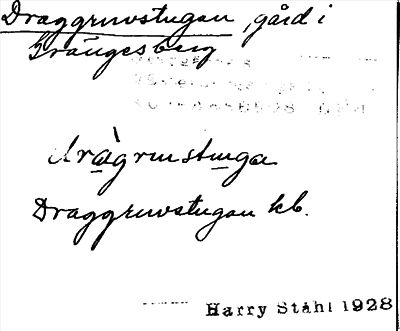 Draggruvstugan, gård i
Grängesberg
dràgrustuga
Draggruvstugan kb.
Harry Ståhl 1928